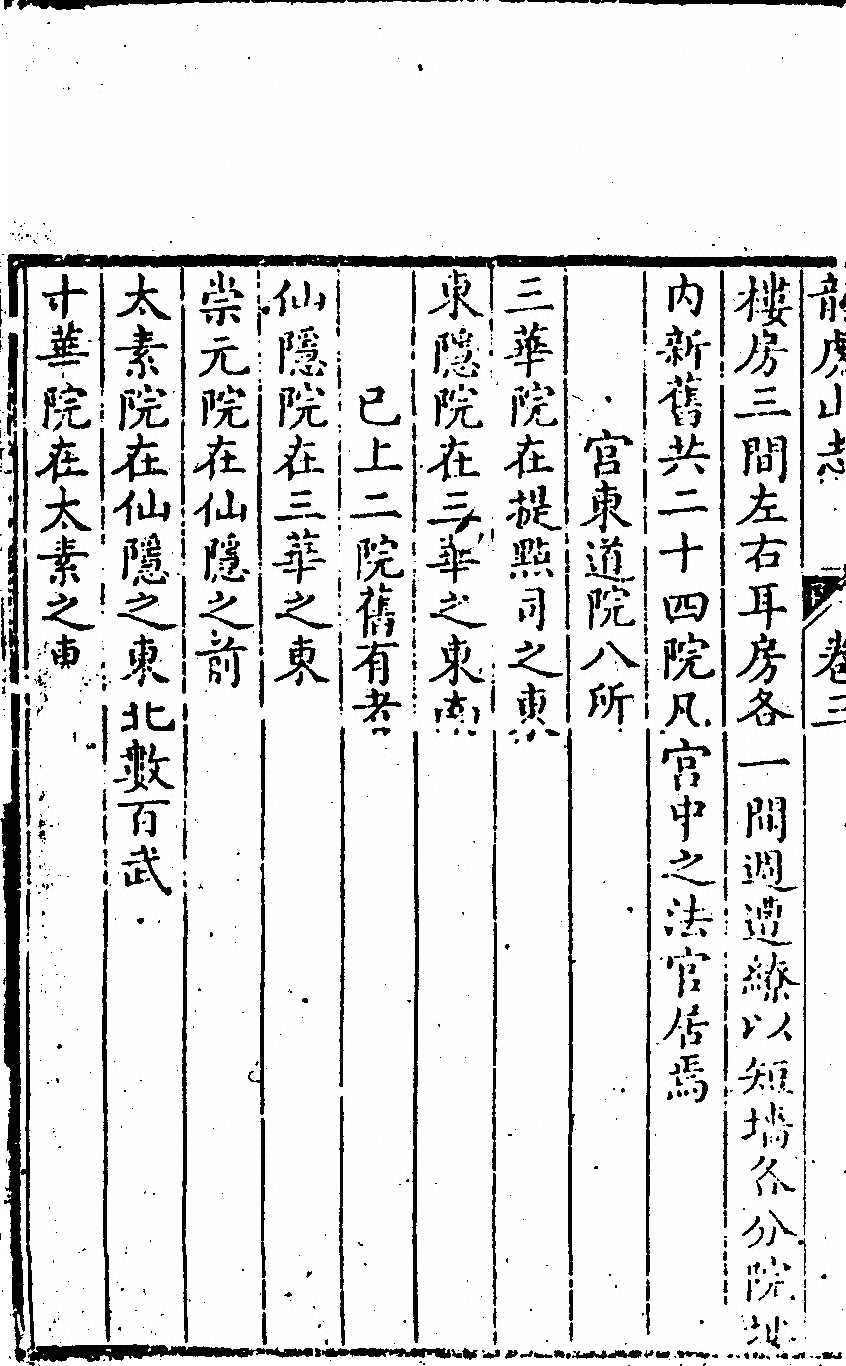 龍虎山志 卷三
樓房三間左右耳房各一間週遭繚以短墻各分院地
内新舊共二十四院凡宮中之法官居焉
宮東道院八所
三華院在提點司之東
東隱院在三華之東南
已上二院舊有者
仙隱院在三華之東
崇元院在仙隱之前
太素院在仙隱之東北數百武
十華院在太素之東